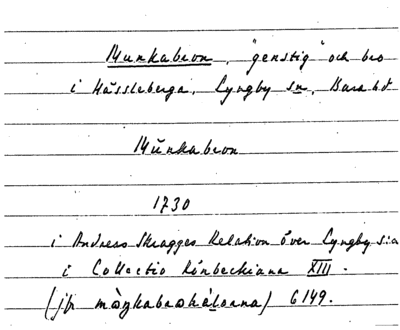 Munkabron, "genstig" och bro
i Hässleberga, Lyngby sn, Bara hd
Mũnkabron
1730
i Andreas Skragges Relation över Lyngby s:a
i Collectio Rönbeckiana XIII.
(jfr 6149.